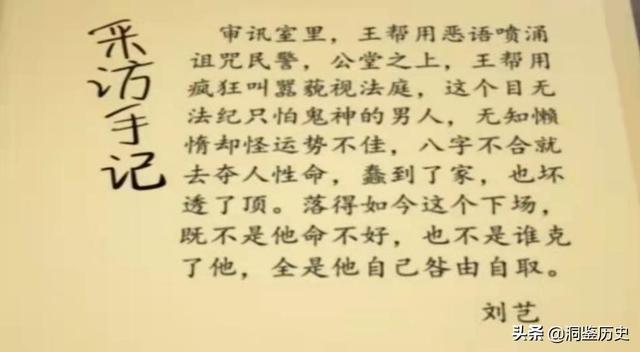 采访手记
审讯室里，王帮用恶语喷涌
诅咒民警，公堂之上，王帮用
疯狂叫嚣藐视法庭，这个目无
法纪只怕鬼神的男人，无知懒
惰却怪运势不佳，八字不合就
去夺人性命，蠢到了家，也坏
透了顶。落得如今这个下场，
既不是他命不好，也不是谁克
了他，全是他自己咎由自取。
刘艺
头条 @洞鉴历史